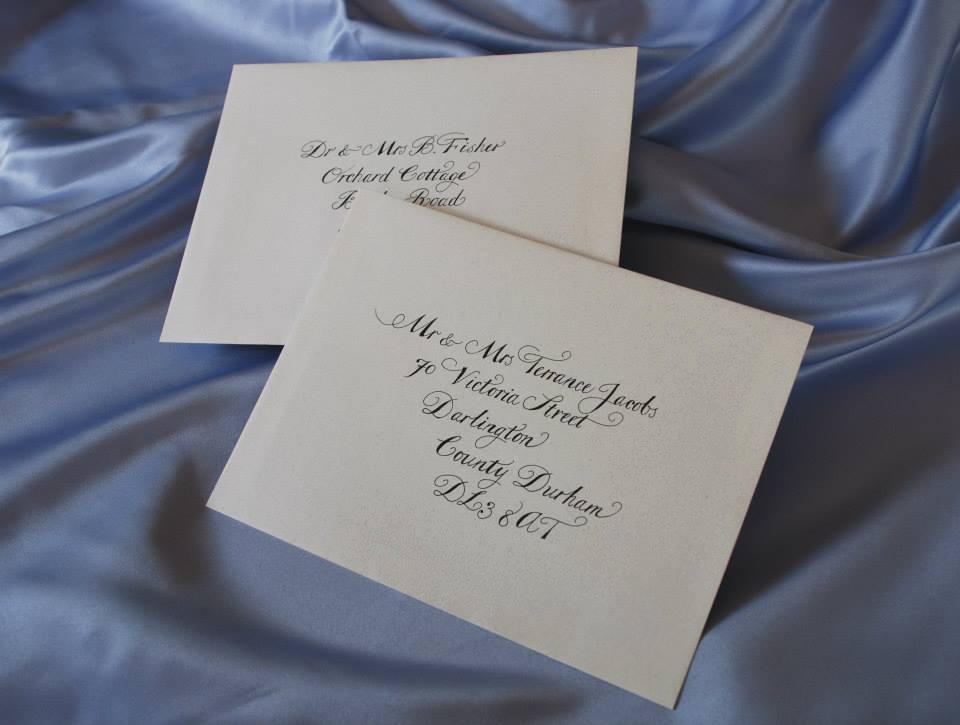 Dr & Mrs B. Fisher
Orchard Cottage
Road
Mr & Mrs Terrance Jacobs
70 Victoria Street
Darlington
County Durham
DL3 8AT